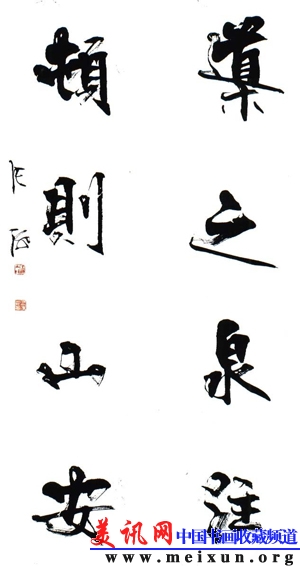 導之泉注
頓則山安
张海
美讯网 中国书画收藏频道
www.meixun.org